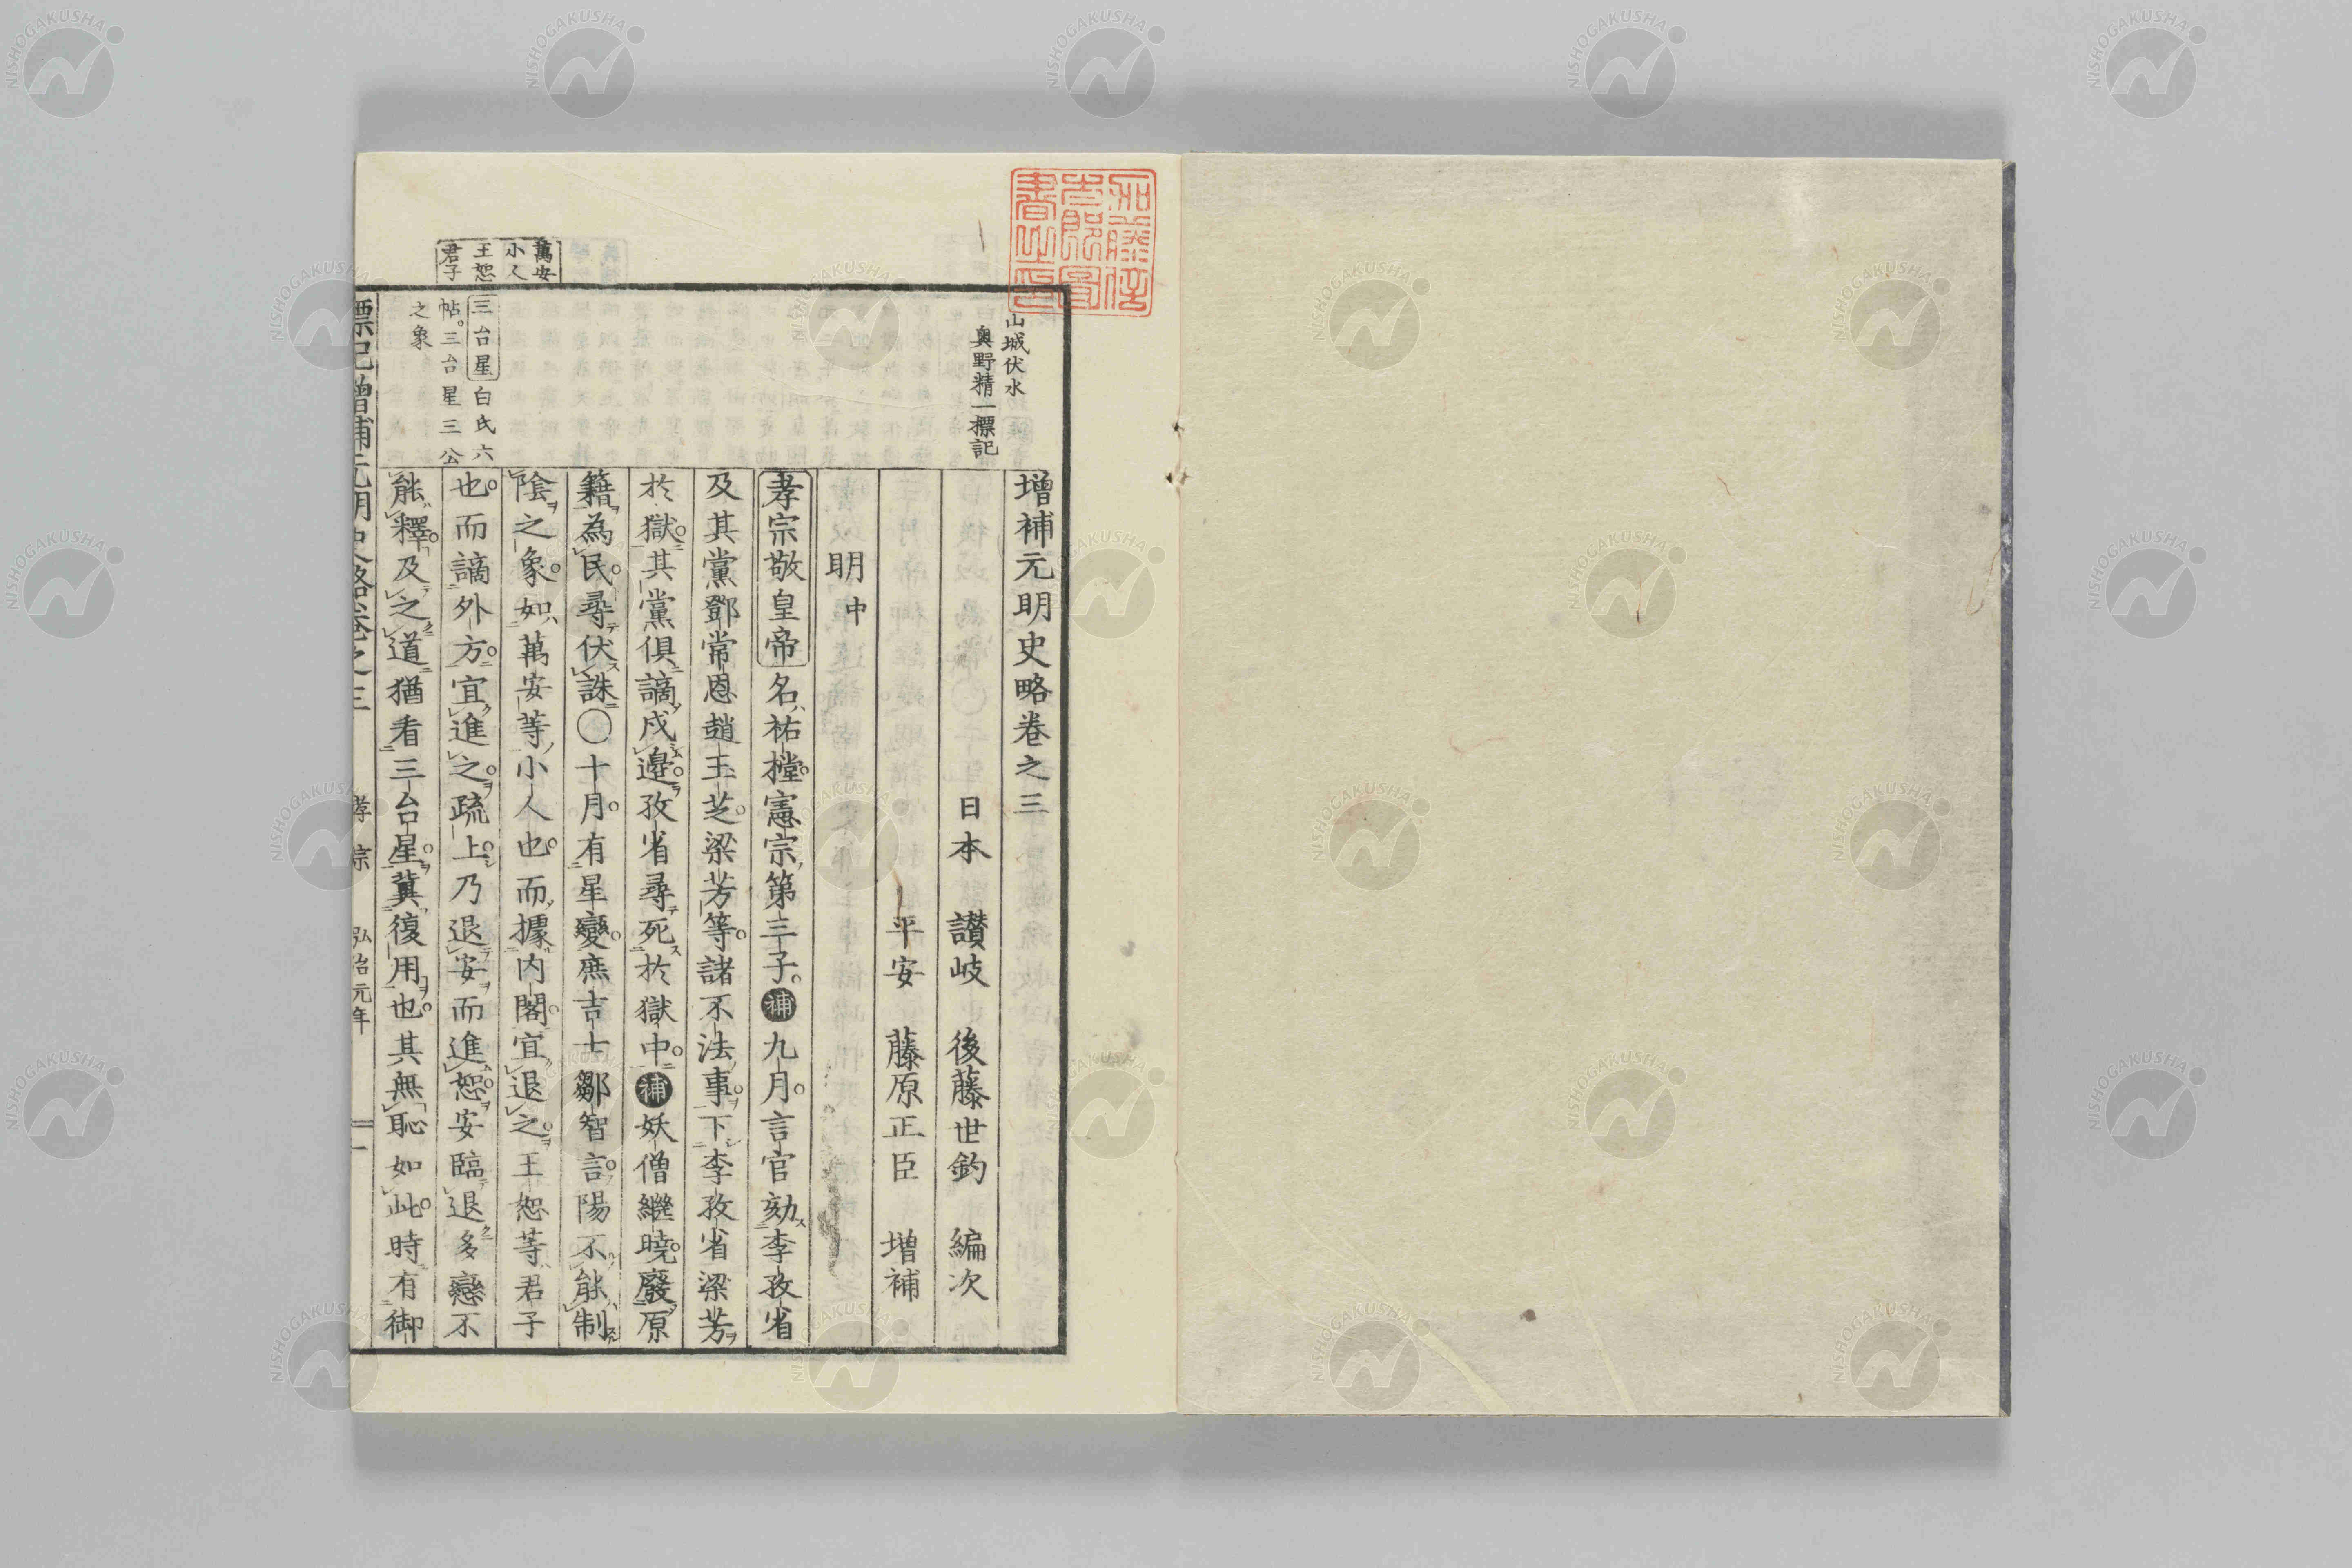 山城伏水
奥野精一標記
増補元明史略卷之三
日本 讃岐 後藤世鈞 編次
平安 藤原正臣 増補
明中
孝宗敬皇帝名祐樘憲宗第三子補九月言官劾李孜省
及其黨鄧常恩趙玉芝梁芳等諸不法事下李孜省梁芳
於獄其黨俱謫戍邊孜省尋死於獄中補妖僧繼曉廢原
籍為民尋伏誅〇十月有星變庶吉士鄒智言陽不能制
陰之象如萬安等小人也而據内閣宜退之王恕等君子
也而謫外方宜進之疏上乃退安而進恕安臨退多戀不
能釋及之道猶看三台星冀復用也其無恥如此時有御
萬安
小人
王恕
君子
三台星白氏六
帖。三台星三公
之象
標記増補元明史略卷之三 孝宗 弘治元年 一
NISHOGAKUSHA